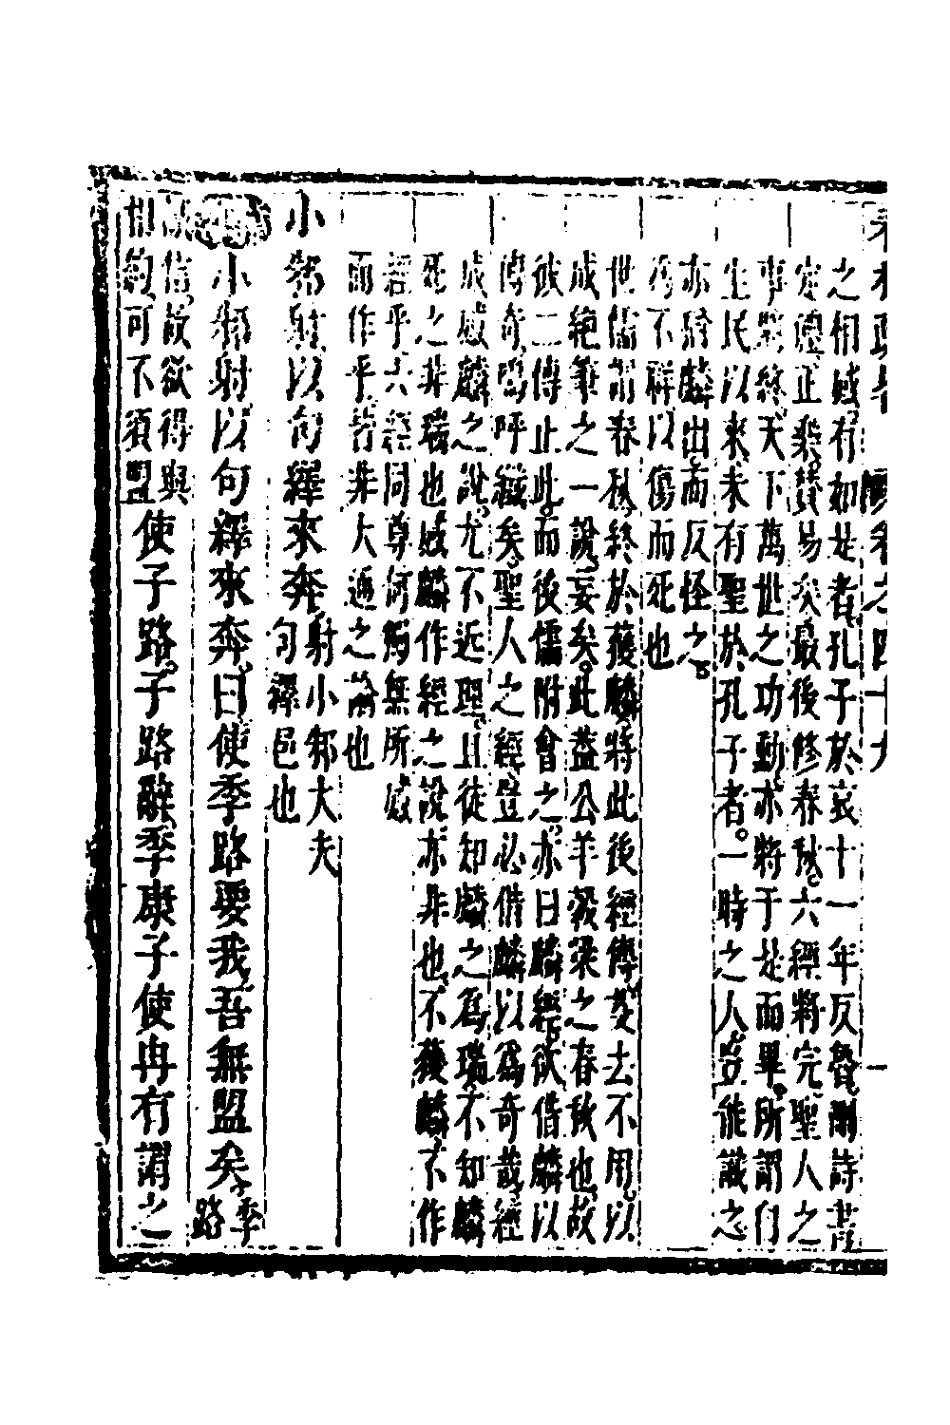 卷之四十九 一
之相感有如是者孔子於哀十一年反魯刪詩書
定禮正樂贊易矣最後修春秋六經將完聖人之
事將終天下萬世之功動亦將于是而畢所謂自
生民以來未有聖於孔子者一時之人豈能識之
亦將麟出而反怪之
為不祥以傷而死也
世儒謂春秋終於獲麟將此後經傳芟去不用以
成絕筆之一說妄矣此蓋公羊穀梁之春秋也故
彼二傳止此而後儒附會之亦曰麟經欲借麟以
傳奇嗚呼矣聖人之經豈必借麟以為奇哉經
成感麟之說尤不近理且徒知麟之為瑞不知麟
死之非瑞也感麟作經之說亦非也不獲麟不作
經乎六經同尊何獨無所感
而作乎皆非大通之論也
小邾射以句繹來奔射小邾大夫句繹邑也
小邾射以句繹來奔曰使季路要我吾無盟矣季路
信故欲得與相約可不須盟使子路子路辭季康子使冉有謂之